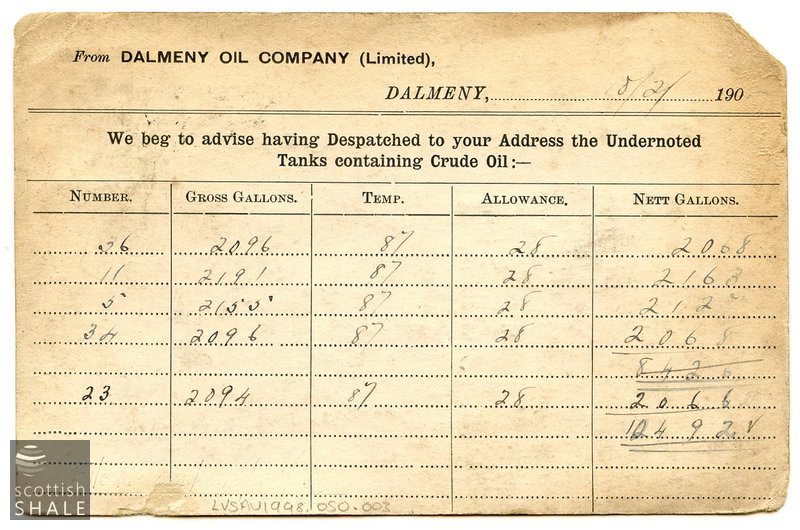 From DALMENY OIL COMPANY (Limited),
DALMENY, 18/2/ 190
We beg to advise having Despatched to your Address the Undernoted
Tanks containing Crude Oil:—
NUMBER. GROSS GALLONS. TEMP. ALLOWANCE. NETT GALLONS.
36 2096 87 28 2068
11 2191 87 28 2163
5 2155 87 28 212
34 2096 87 28 2068
8426
23 2094 87 28 2066
10492
scottish
SHALE
LVSAV1998.050.003